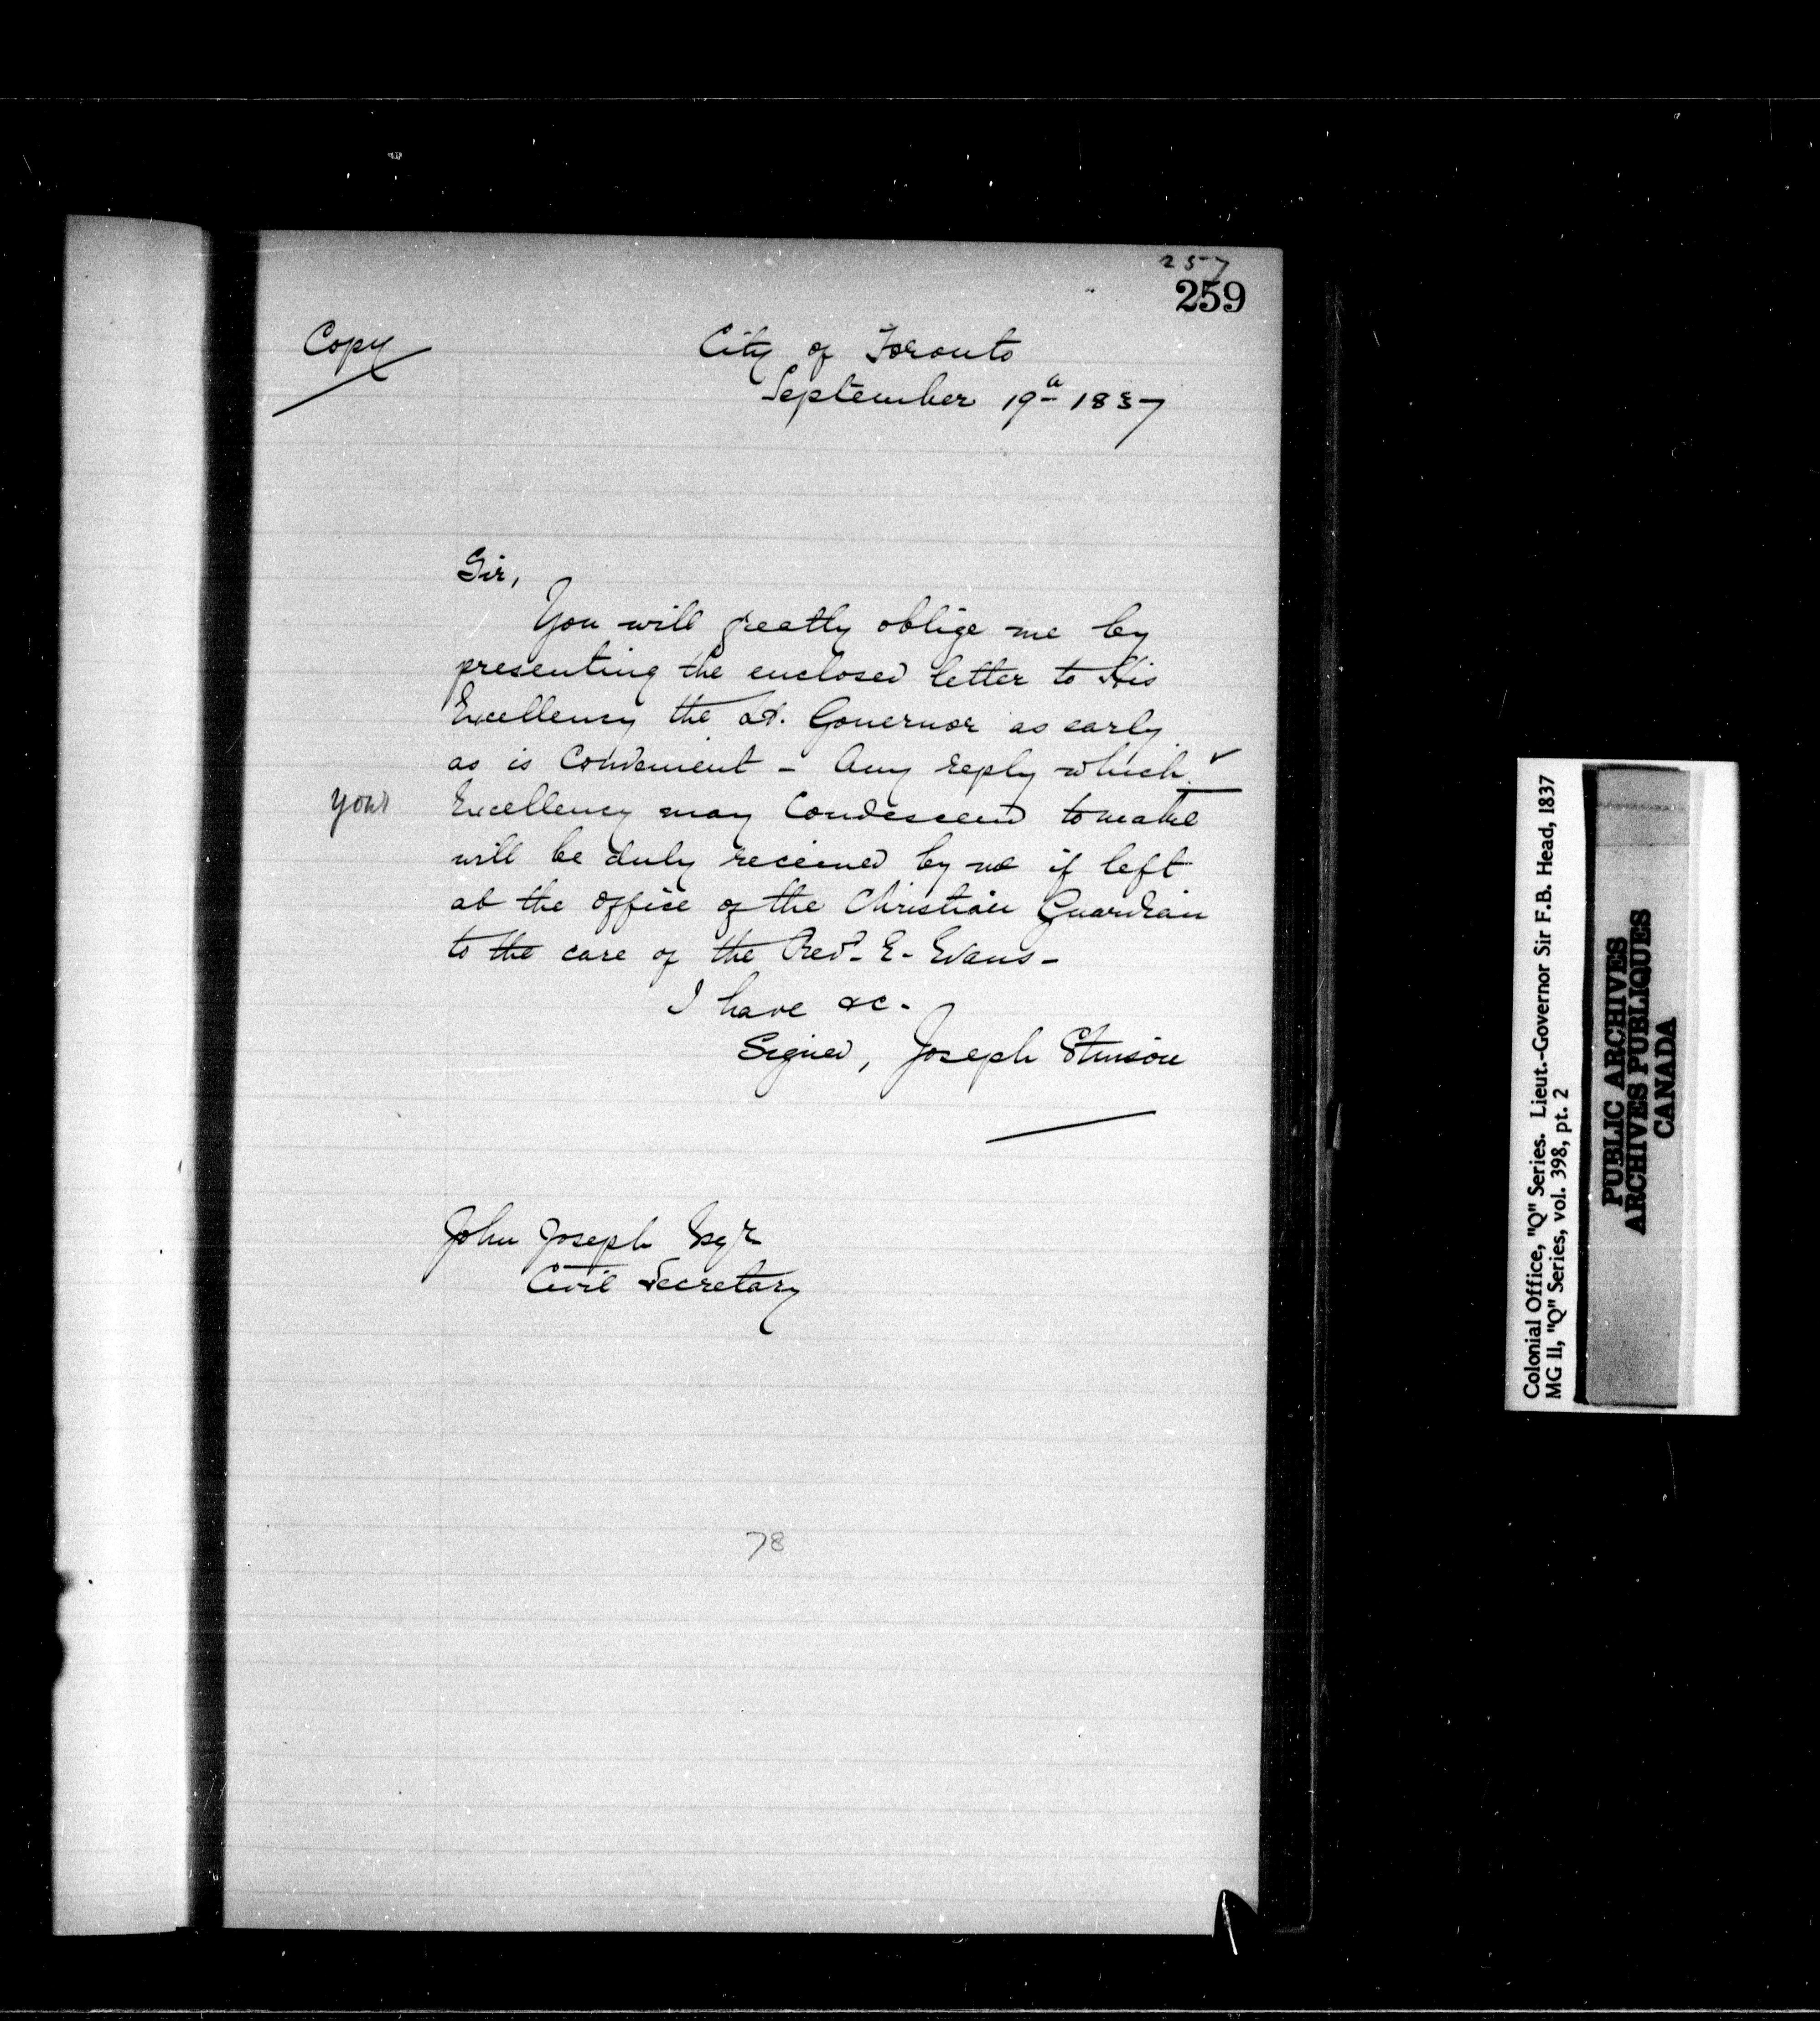 257
259
Copy
City of Toronto
September 19th 1837
Sir,
You will greatly oblige me by
presenting the enclosed letter to His
Excellency the Lt. Governor as early
as is Convenient - Any reply which ✓
your
Excellency may Condescend to make
will be duly received by me if left
at the office of the Christian Guardian
to the care of the Revd. E. Evans -
I have &c.
Signed, Joseph Stinson
John Joseph Esqr
Civil Secretary
78
Colonial Office, "Q" Series. Lieut.-Governor Sir F.B. Head, 1837
MG 11, "Q" Series, vol. 398, pt. 2
PUBLIC ARCHIVES
ARCHIVES PUBLIQUES
CANADA